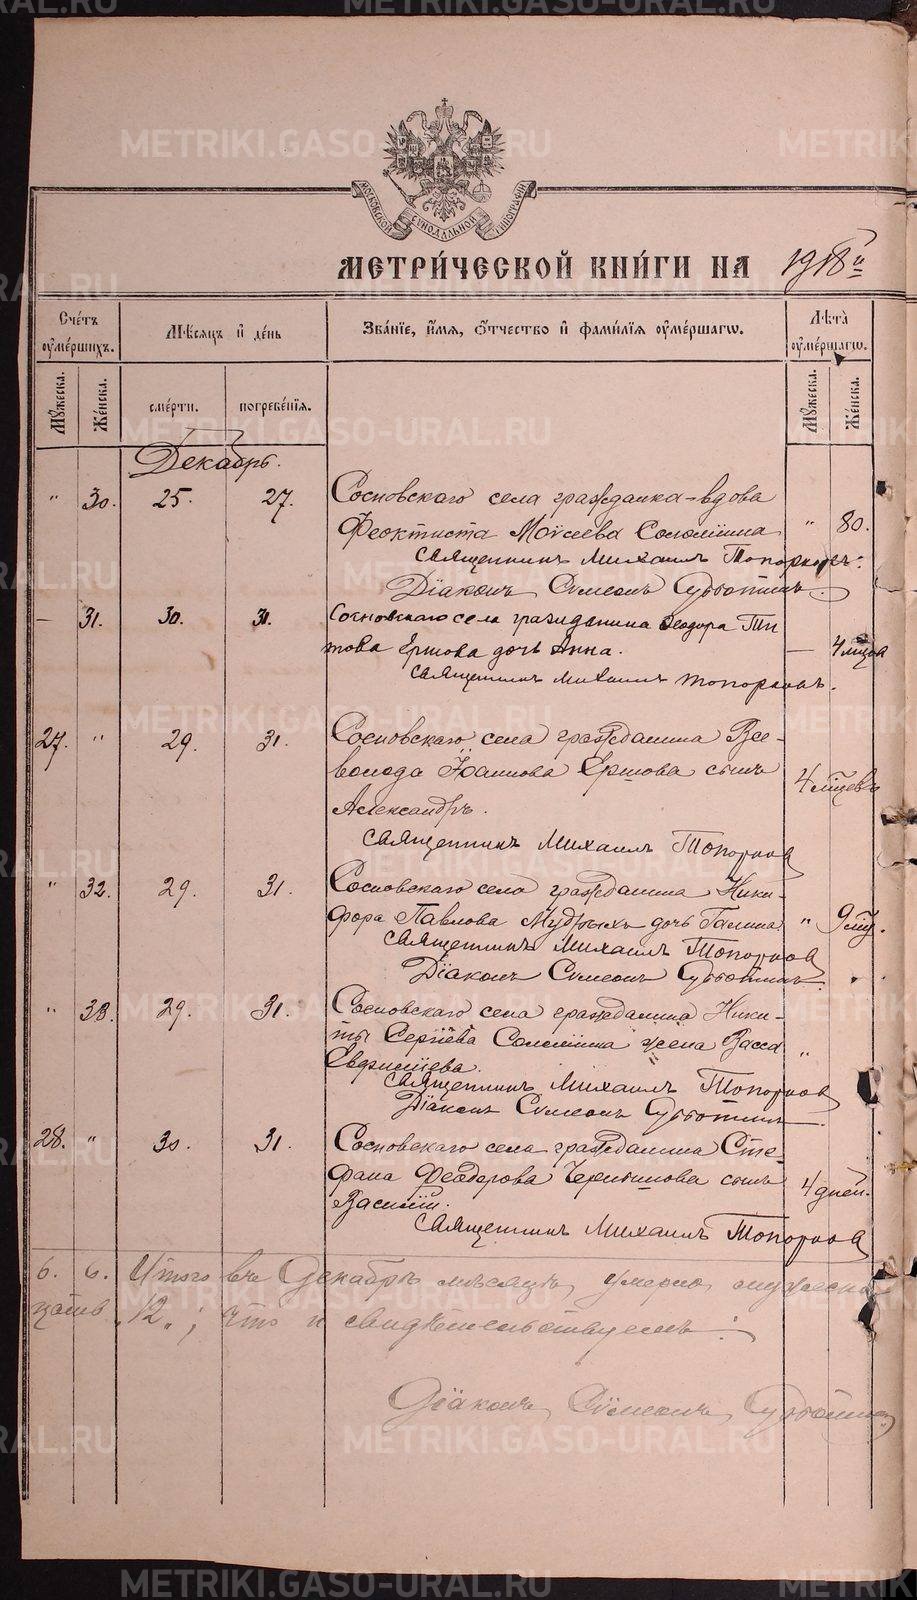 METRIKI.GASO-URAL.RU
МОСКОВСКОЙ СУНОДАЛЬНОЙ ТИПОГРАФІИ
МЕТРИ́ЧЕСКОЙ КНИ́ГИ НА 1918й
Сче́тъ ѹ҆ме́ршихъ.
Мѣ́сяцъ и҆ де́нь
Зва́нїе, и҆́мѧ, ѻ҆́тчество и҆ фами́лїѧ ѹ҆ме́ршагѡ.
Лѣта̀ ѹ҆ме́ршагѡ.
Мꙋ́жеска.
Же́нска.
сме́рти.
погребе́нїѧ.
Мꙋ́жеска.
Же́нска.
Декабрь.
" 30. 25. 27. Сосновскаго села гражданка-вдова
Феоктиста Моѵсеева " 80.
Священникъ Михаилъ Топорковъ.
Дїаконъ Сѵмеонъ Субботинъ.
— 31. 30. 31. Сосновскаго села гражданина Ѳеодора Ти
това Ершова дочь Анна. — 4 мѣсяца
Священникъ Михаилъ Топорковъ.
27. " 29. 31. Сосновскаго села гражданина Все-
волода Іоаннова Ершова сынъ 4 мѣсяцевъ
Александръ.
Священникъ Михаилъ Топорков
" 32. 29. 31. Сосновскаго села гражданина Ники-
фора Павлова Мудрыхъ дочь Галина " 9 мѣс.
Священникъ Михаилъ Топорков
Дїаконъ Сѵмеонъ Субботинъ.
" 33. 29. 31. Сосновскаго села гражданина Ники-
ты Сергїева жена Васса "
Евфимїева.
Священникъ Михаилъ Топорков
Дїаконъ Сѵмеонъ Субботинъ
28. " 30. 31. Сосновскаго села гражданина Сте-
фана Феодорова сынъ 4 дней.
Василїй.
Священникъ Михаилъ Топорков
6. 6. Итого въ Декабрѣ мѣсяцѣ умерло
"12"; что и свидѣтельствуемъ:
Дїаконъ Сѵмеонъ Субботинъ